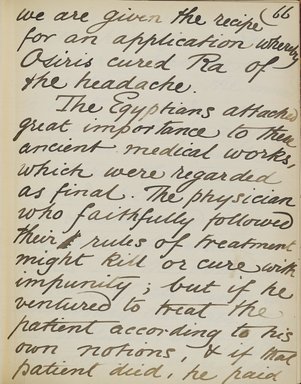 66
we are given the recipe
for an application whereby
Osiris cured Ra of
the headache.
The Egyptians attached
great importance to these
ancient medical works,
which were regarded
as final. The physician
who faithfully followed
their rules of treatment
might kill or cure with
impunity; but if he
ventured to treat the
patient according to his
own notions, & if that
patient died, he paid